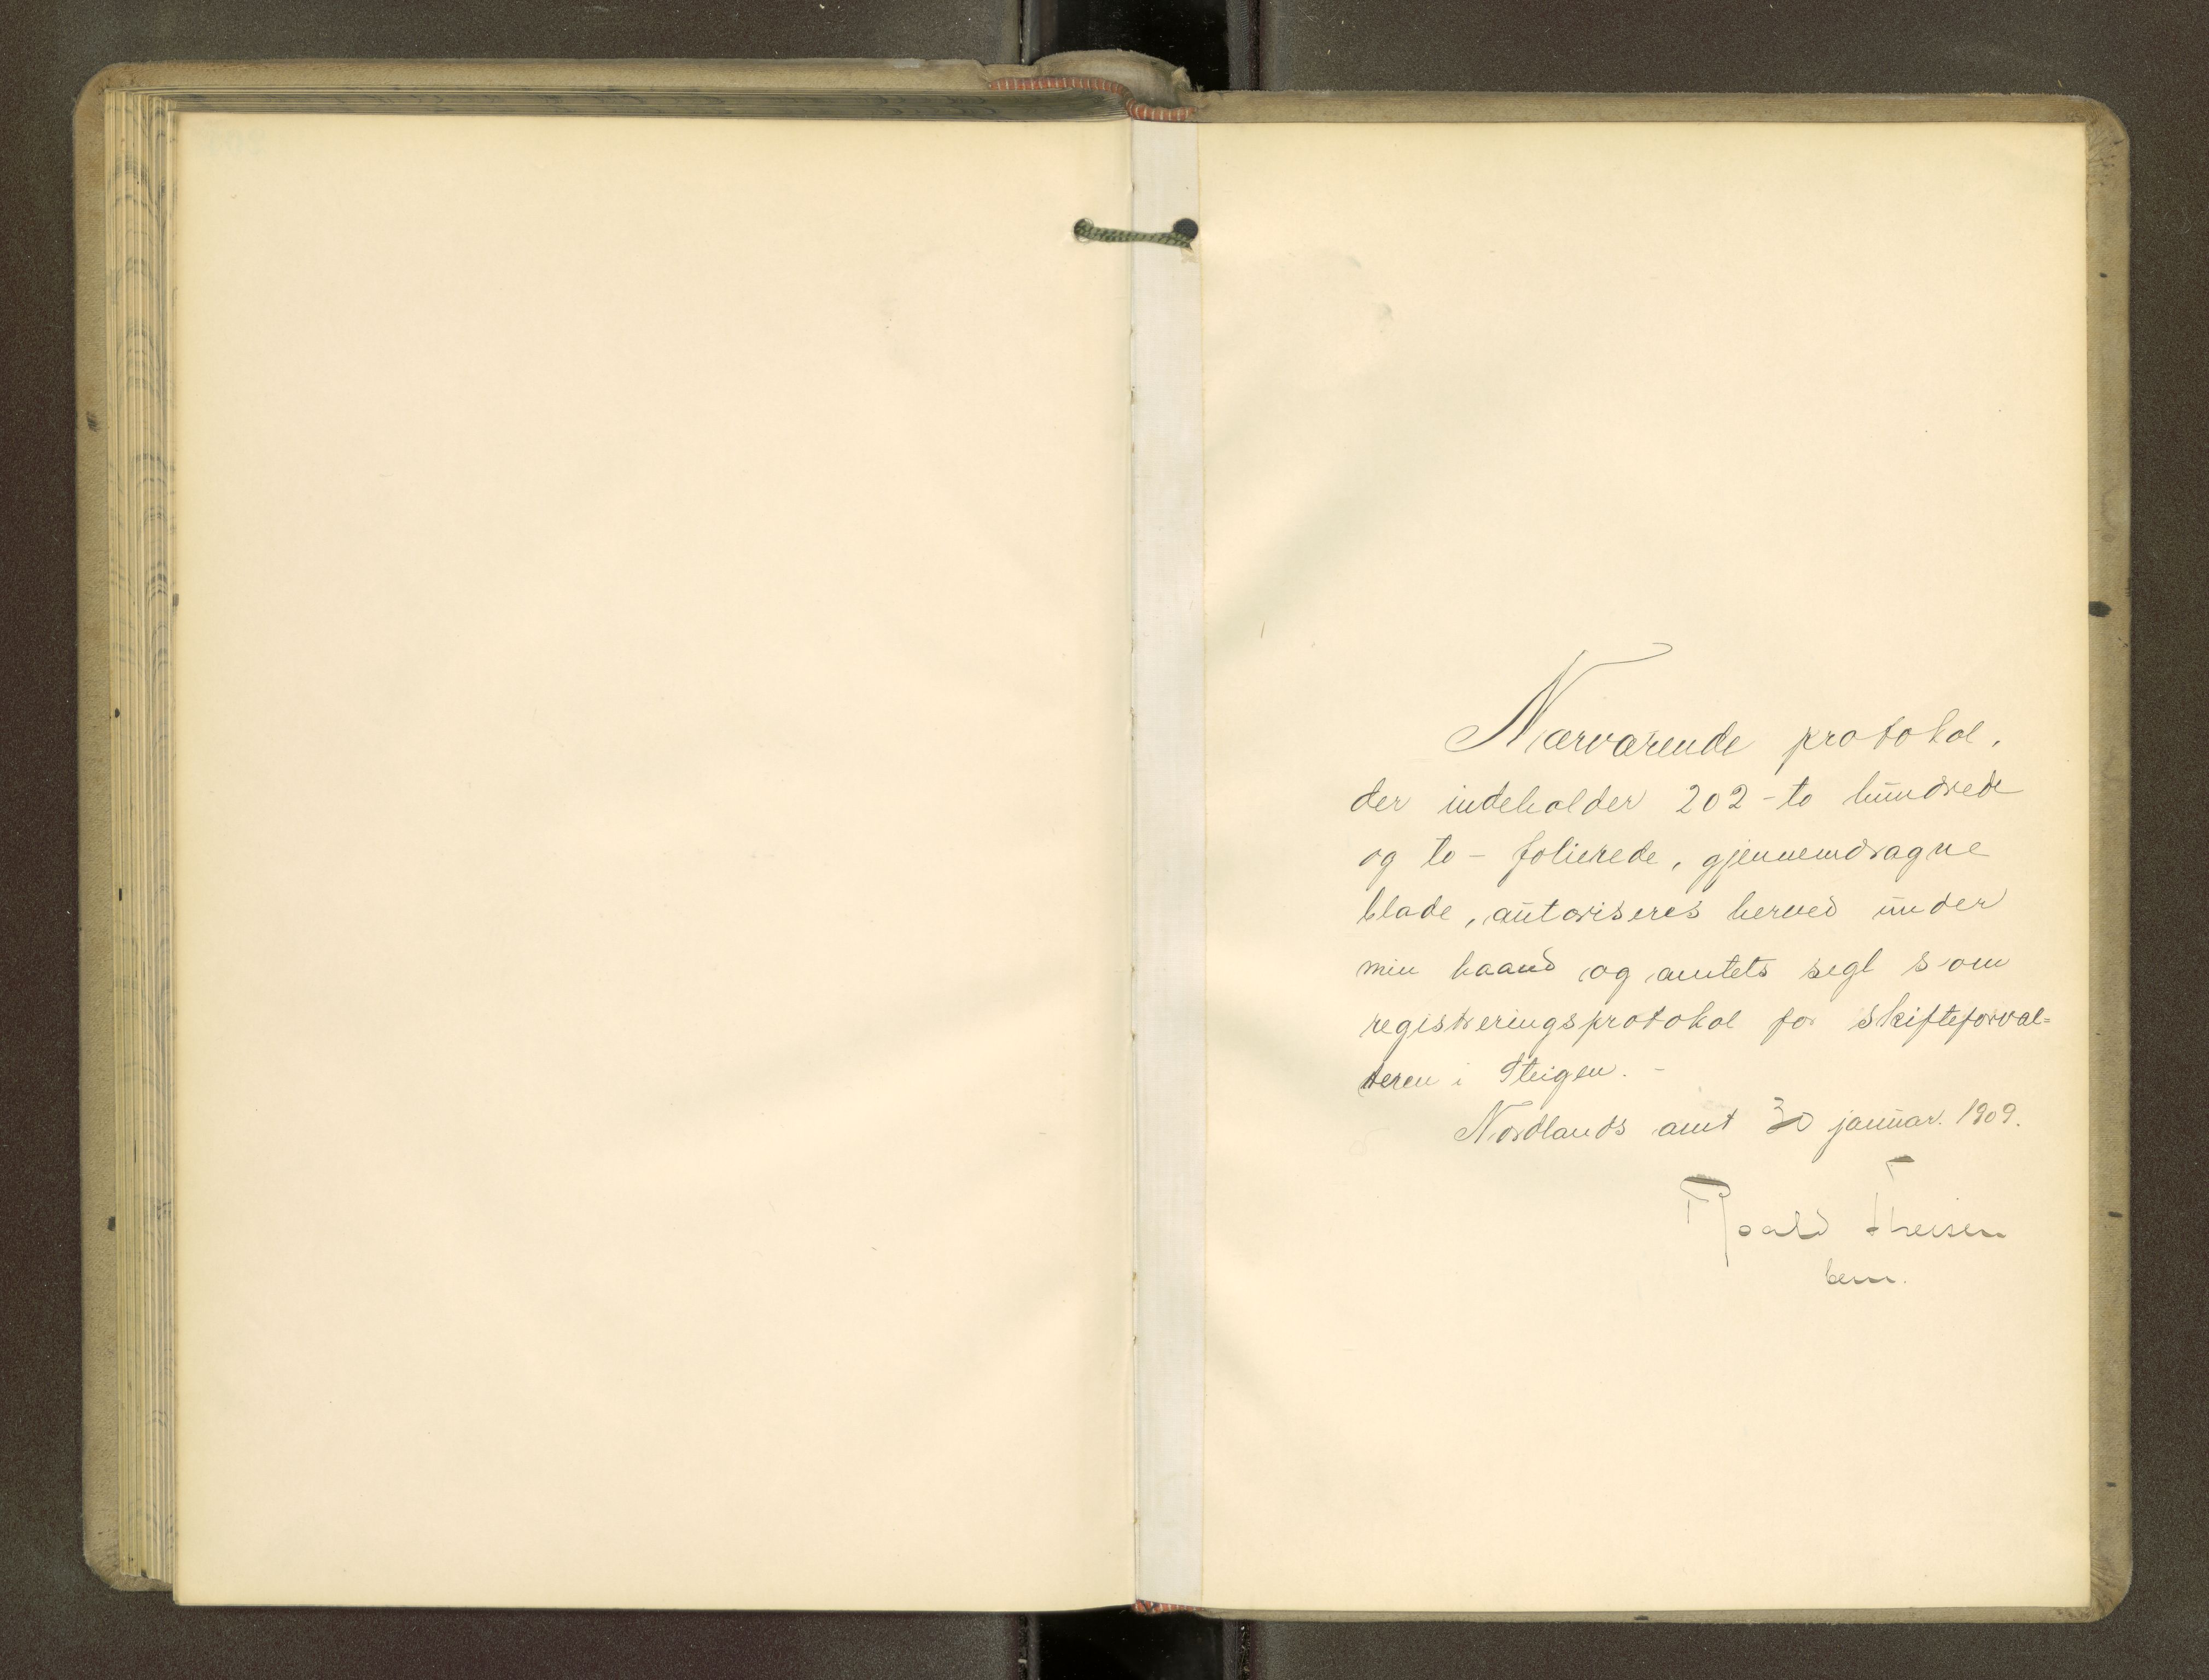 Nærværende protokol,
der indeholder 202 - to hundrede
og to - folierede, gjennemdragne
blade, autoriseres herved under
min haand og amtets segl som
registreringsprotokol for skifteforval=
teren i Steigen. -
Nordlands amt 30 januar. 1909.
Roald Theisen
bem.